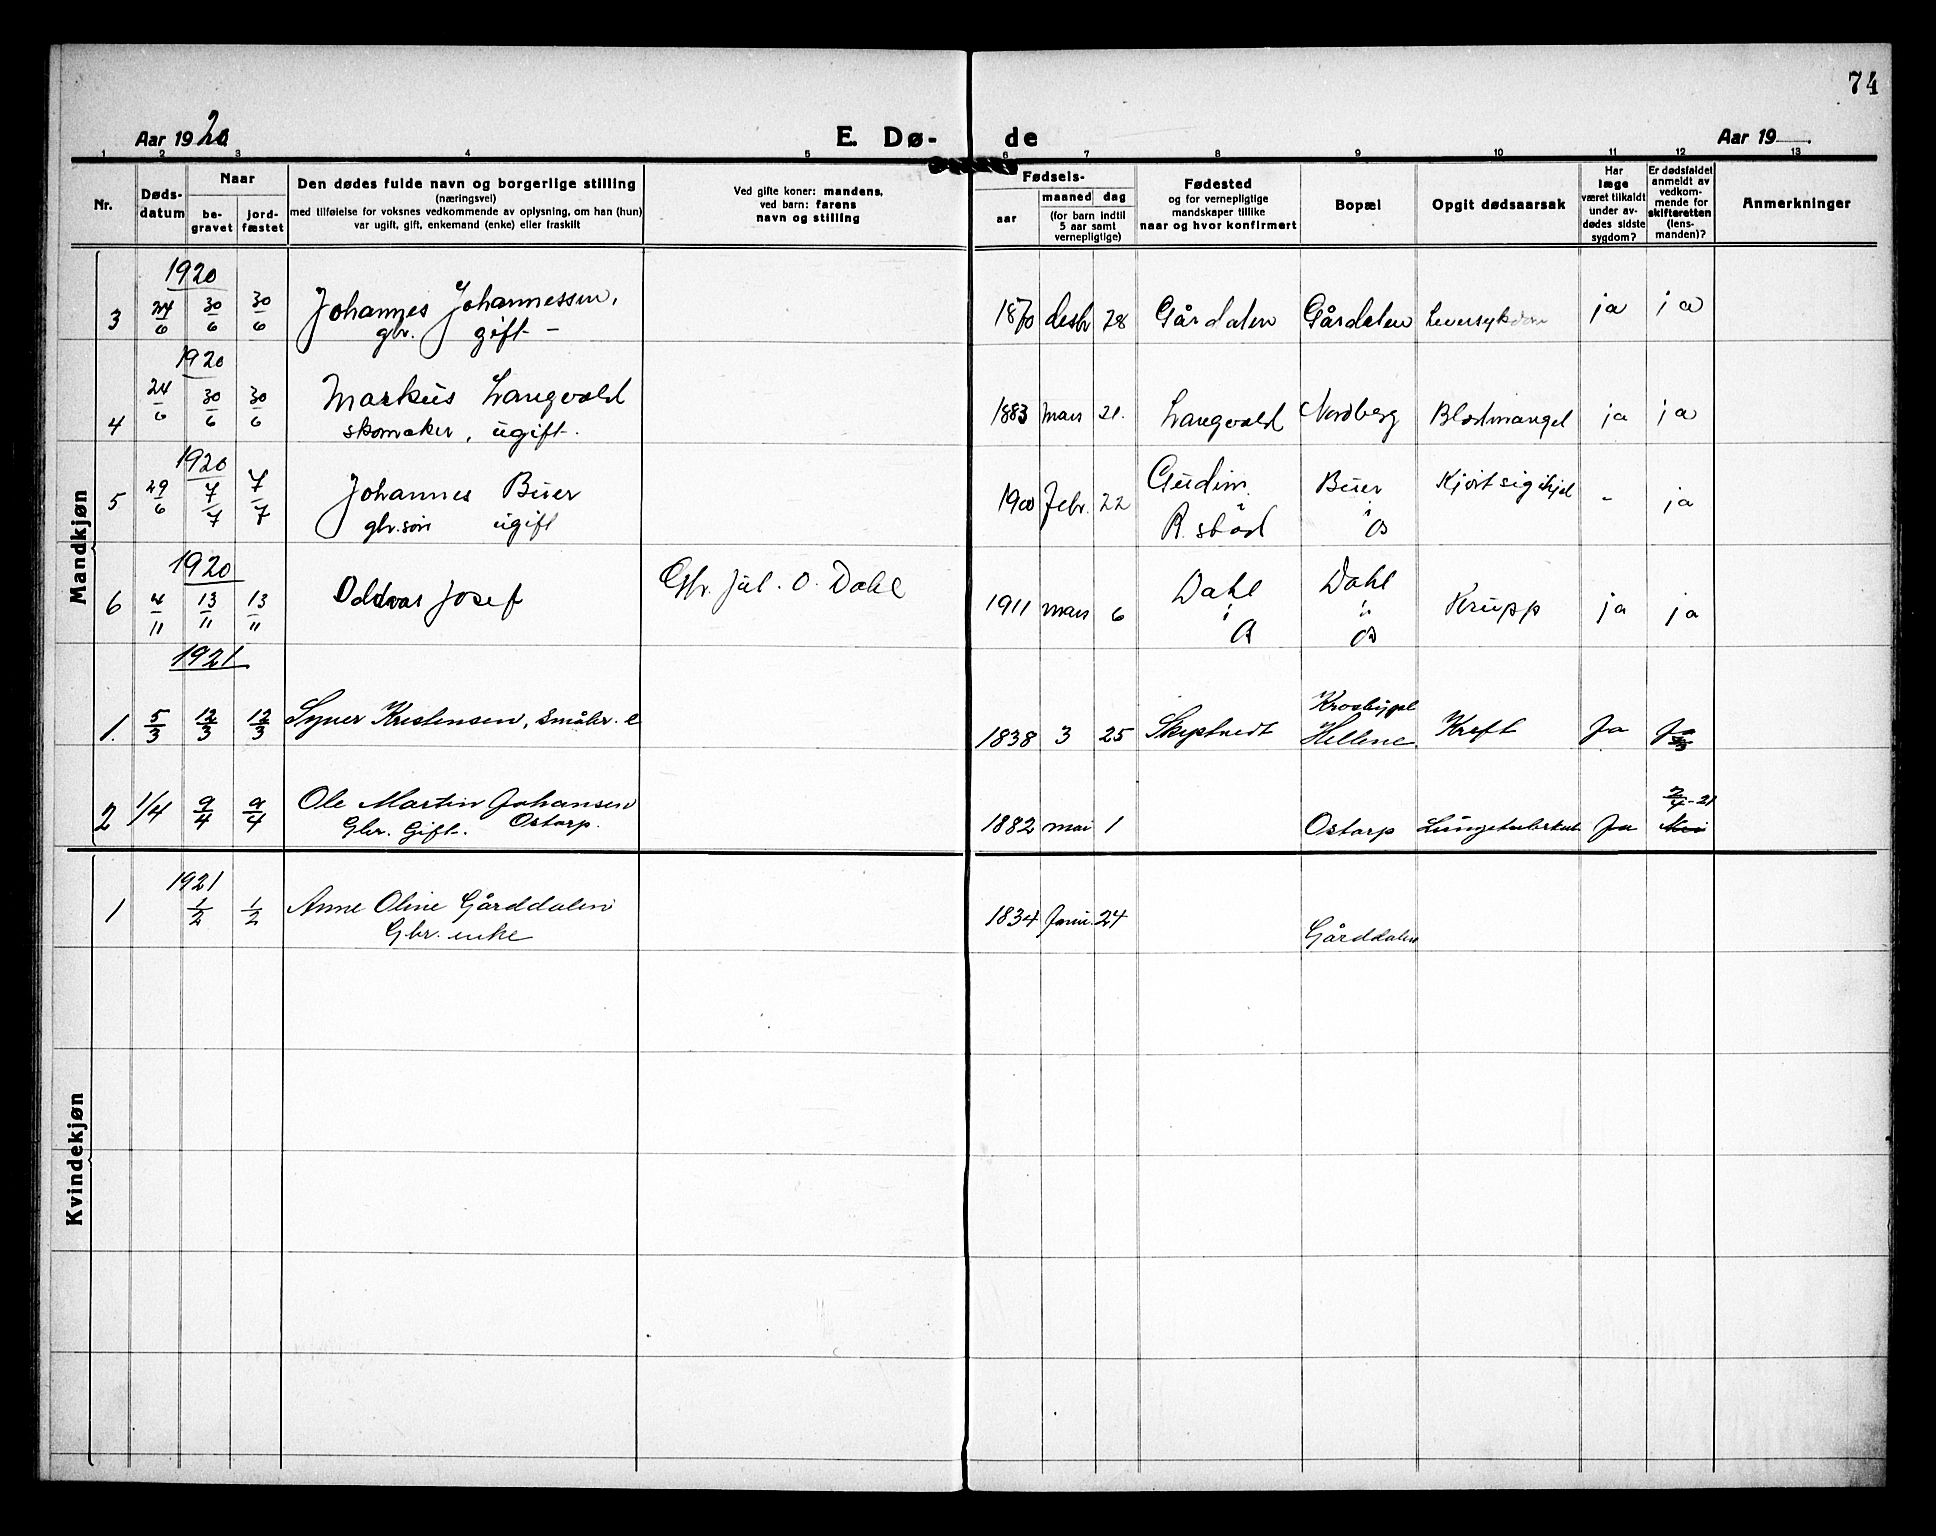 74
Aar 1920
E. Dø- de
Aar 19
1 2 3 4 5 6 7 8 9 10 11 12 13
Nr.
Døds-
datum
Naar
be-
gravet
jord-
fæstet
Den dødes fulde navn og borgerlige stilling
(næringsvei)
med tilføielse for voksnes vedkommende av oplysning, om han (hun)
var ugift, gift, enkemand (enke) eller fraskilt
Ved gifte koner: mandens,
ved barn: farens
navn og stilling
Fødsels-
aar
maaned dag
(for barn indtil
5 aar samt
vernepligtige)
Fødested
og for vernepligtige
mandskaper tillike
naar og hvor konfirmert
Bopæl
Opgit dødsaarsak
Har
læge
været tilkaldt
under av-
dødes sidste
sygdom?
Er dødsfaldet
anmeldt av
vedkom-
mende for
skifteretten
(lens-
manden)?
Anmerkninger
Mandkjøn
1920
3 24/6 30/6 30/6 Johannes Johannessen, 1870 desbr 28 Gårdalen Gårdalen Leversykdom ja ja
gbr. gift -
1920
4 24/6 30/6 30/6 Markus Langvald 1883 mars 21. Langvald Nordberg Blodmangel ja ja
skomaker, ugift.
1920
5 29/6 7/7 7/7 Johannes Buer 1900 Febr. 22 Gudim Buer - ja
gbr.søn ugift i R. stød i Ås
1920
6 4/11 13/11 13/11 Oddvar Josef Gbr. Jul. O. Dahl 1911 mars 6 Dahl Dahl Krupp ja ja
i i
1921
1. 5/3 12/3 12/3 Syver Kristensen, Småbr. e 1838 3 25 Hellene Kreft Ja Ja
2 1/4 9/4 9/4 Ole Martin Johansen 1882 mai 1 Ostorp Lungetuberkul Ja 2/4-21
Gbr. Gift. Ostorp. Nei
Kvindekjøn
1921
1 1/2 1/2 Anne Oline Gårddalen 1834 Janu. 24 Gårddalen
Gbr. enke